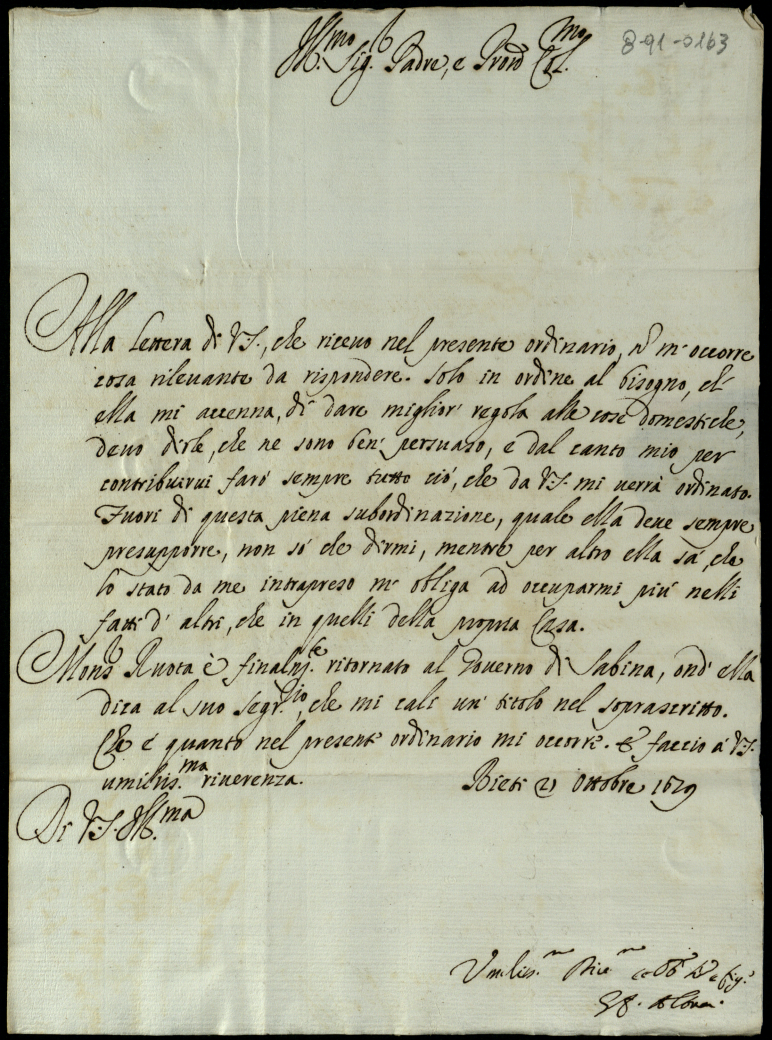 8-91-0163
Ill.mo Sig.r Padre, e Pron Col.mo
Alla lettera di V.S., che riceuo nel presente ordinario, nõ m'occorre
cosa rileuante da rispondere. Solo in ordine al bisogno, ch'
ella mi accenna, di dare miglior' regola alle cose domestiche,
deuo dirle, che ne sono ben' persuaso, e dal canto mio per
contribuirui farò sempre tutto ciò, che da V.S. mi uerrà ordinato.
Fuori di questa piena subordinazione, quale ella deue sempre
presupporre, non sò che dirmi, mentre per altro ella sà, che
lo stato da me intrapreso m'obliga ad occuparmi più nelli
fatti d'altri, che in quelli della propria Casa.
Mons.r Ruota è finalm.te ritornato al Gouerno di Sabina, ond'ella
dica al suo Segr.rio, che mi cali un' titolo nel soprascritto.
Che è quanto nel present' ordinario mi occorre. E faccio à V.S.
umiliss.ma riuerenza. Rieti 21 Ottobre 1679
Di V.S. Ill.ma
Vmiliss.mo e fig.